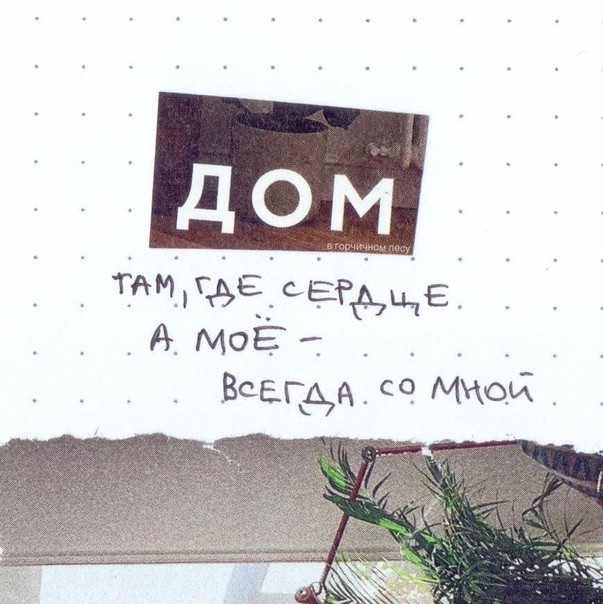 ДОМ
в горчичном лесу
ТАМ, ГДЕ СЕРДЦЕ
А МОЁ –
ВСЕГДА СО МНОЙ